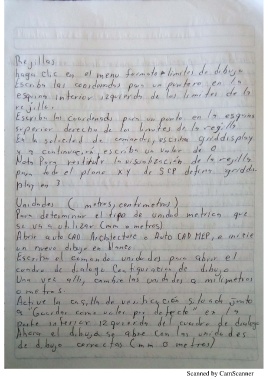 Rejillas
haga clic en el menu formato limites de dibujo
Escriba las coordenadas para un puntero en la
esquina inferior izquierda de los limites de la
rejilla.
Escriba las coordenadas para un punto en la esquina
superior derecha de los limites de la rejilla
En la solicitud de comandos, escriba griddisplay
y a continuacion, escriba un valor de 0
Nota Para restablecer la visualizacion de la rejilla
para todo el plano XY de SCP defina griddis
play en 3
Unidades (metros, centimetros)
Para determinar el tipo de unidad metrica que
se va a utilizar (mm o metros)
Abrir auto CAD Architecture o Auto CAD MEP, e inicie
un nuevo dibujo en blanco
Escriba el comando unidades para abrir el
cuadro de dialogo Configuracion de dibujo
Una vez alli, cambie las unidades a milimetros
o metros.
Active la casilla de verificación situada junto
a "Guardar como valor por defecto" en la
parte inferior izquierda del cuadro de dialogo
Ahora el dibujo se abre con las unidades
de dibujo correctas (mm. o metros)
Scanned by CamScanner